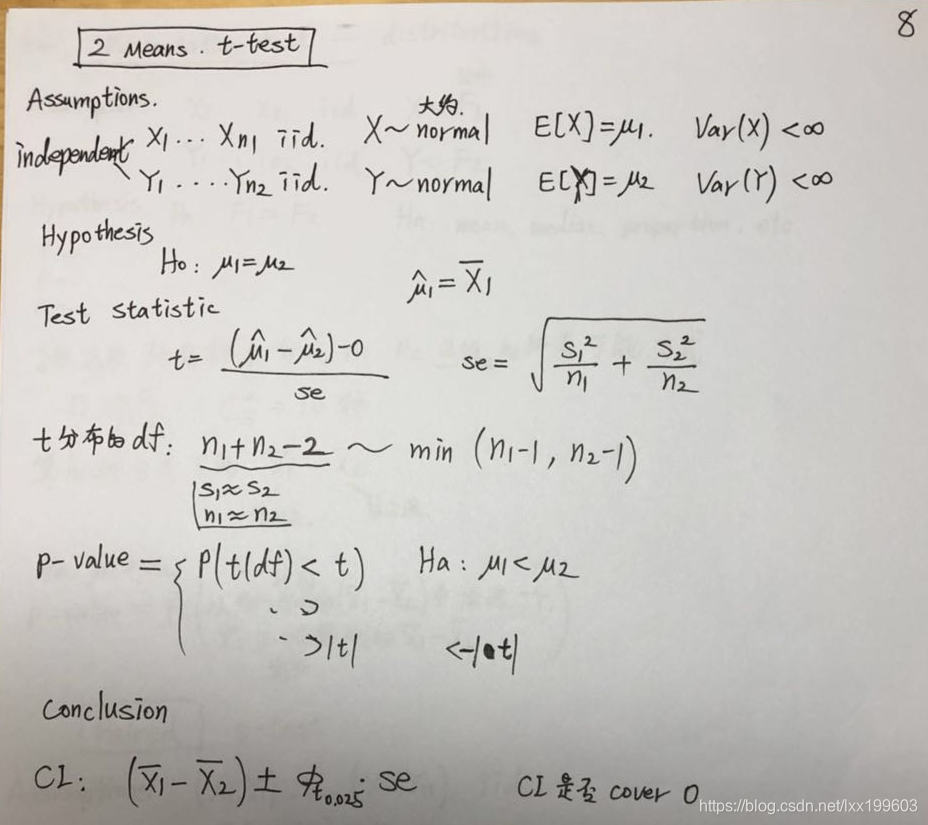 8
2 Means. t-test
Assumptions.
大约.
independent X₁ ... Xn₁ iid. X~normal E[X]=μ₁. Var(X)<∞
Y₁ ..... Yn₂ iid. Y~normal E[Y]=μ₂ Var(Y)<∞
Hypothesis
H₀: μ₁=μ₂
μ̂₁ = X̅₁
Test statistic
t = ((μ̂₁ - μ̂₂)-0)/se se = √(s₁²/n₁ + s₂²/n₂)
t分布的df: n₁+n₂-2 ~ min (n₁-1, n₂-1)
s₁≈s₂
n₁≈n₂
p-value = { P(t(df) < t) Ha: μ₁<μ₂
.. >
.. >|t| <-|t|
Conclusion
CI: (X̅₁ - X̅₂) ± t₀.₀₂₅ · se CI是否 cover 0
https://blog.csdn.net/lxx199603